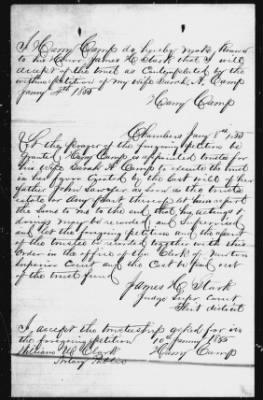 I Harry Camp do hereby make known
to his Honor James H. Stark that I will
accept of the trust as contemplated by the
within petition of my wife Sarah A. Camp
Jany 8th 1855
Harry Camp
Chambers Jany 8th 1855
Let the prayer of the foregoing petition be
Granted, Harry Camp is appointed trustee for
his wife Sarah A Camp to execute the trust
upon created by the last will of her
father John Sawyer as soon as the trust
estate or any part thereof at him report
the same to me to the end that my actings &
doings may be and
and let the foregoing petition and the
of the trustee be recorded together with this
Order in the office of the Clerk of Newton
Superior Court and the Cost be paid out
of the trust fund
James H. Stark
Judge Supr Court
Flint district
I accept the trusteeship asked for in
the foregoing petition 10th January 1855
William W. Clark Harry Camp
Notary Public